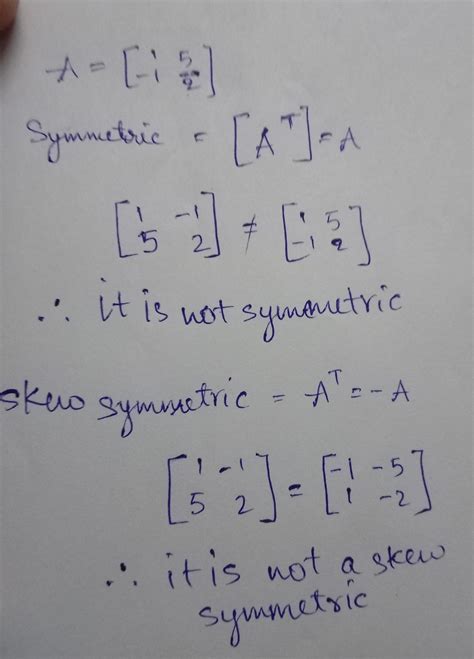 A = [1 5
-1 2]
Symmetric = [Aᵀ] = A
[1 -1
5 2] ≠ [1 5
-1 2]
∴ it is not symmetric
skew symmetric = Aᵀ = - A
[1 -1
5 2] = [-1 -5
1 -2]
∴ it is not a skew
symmetric